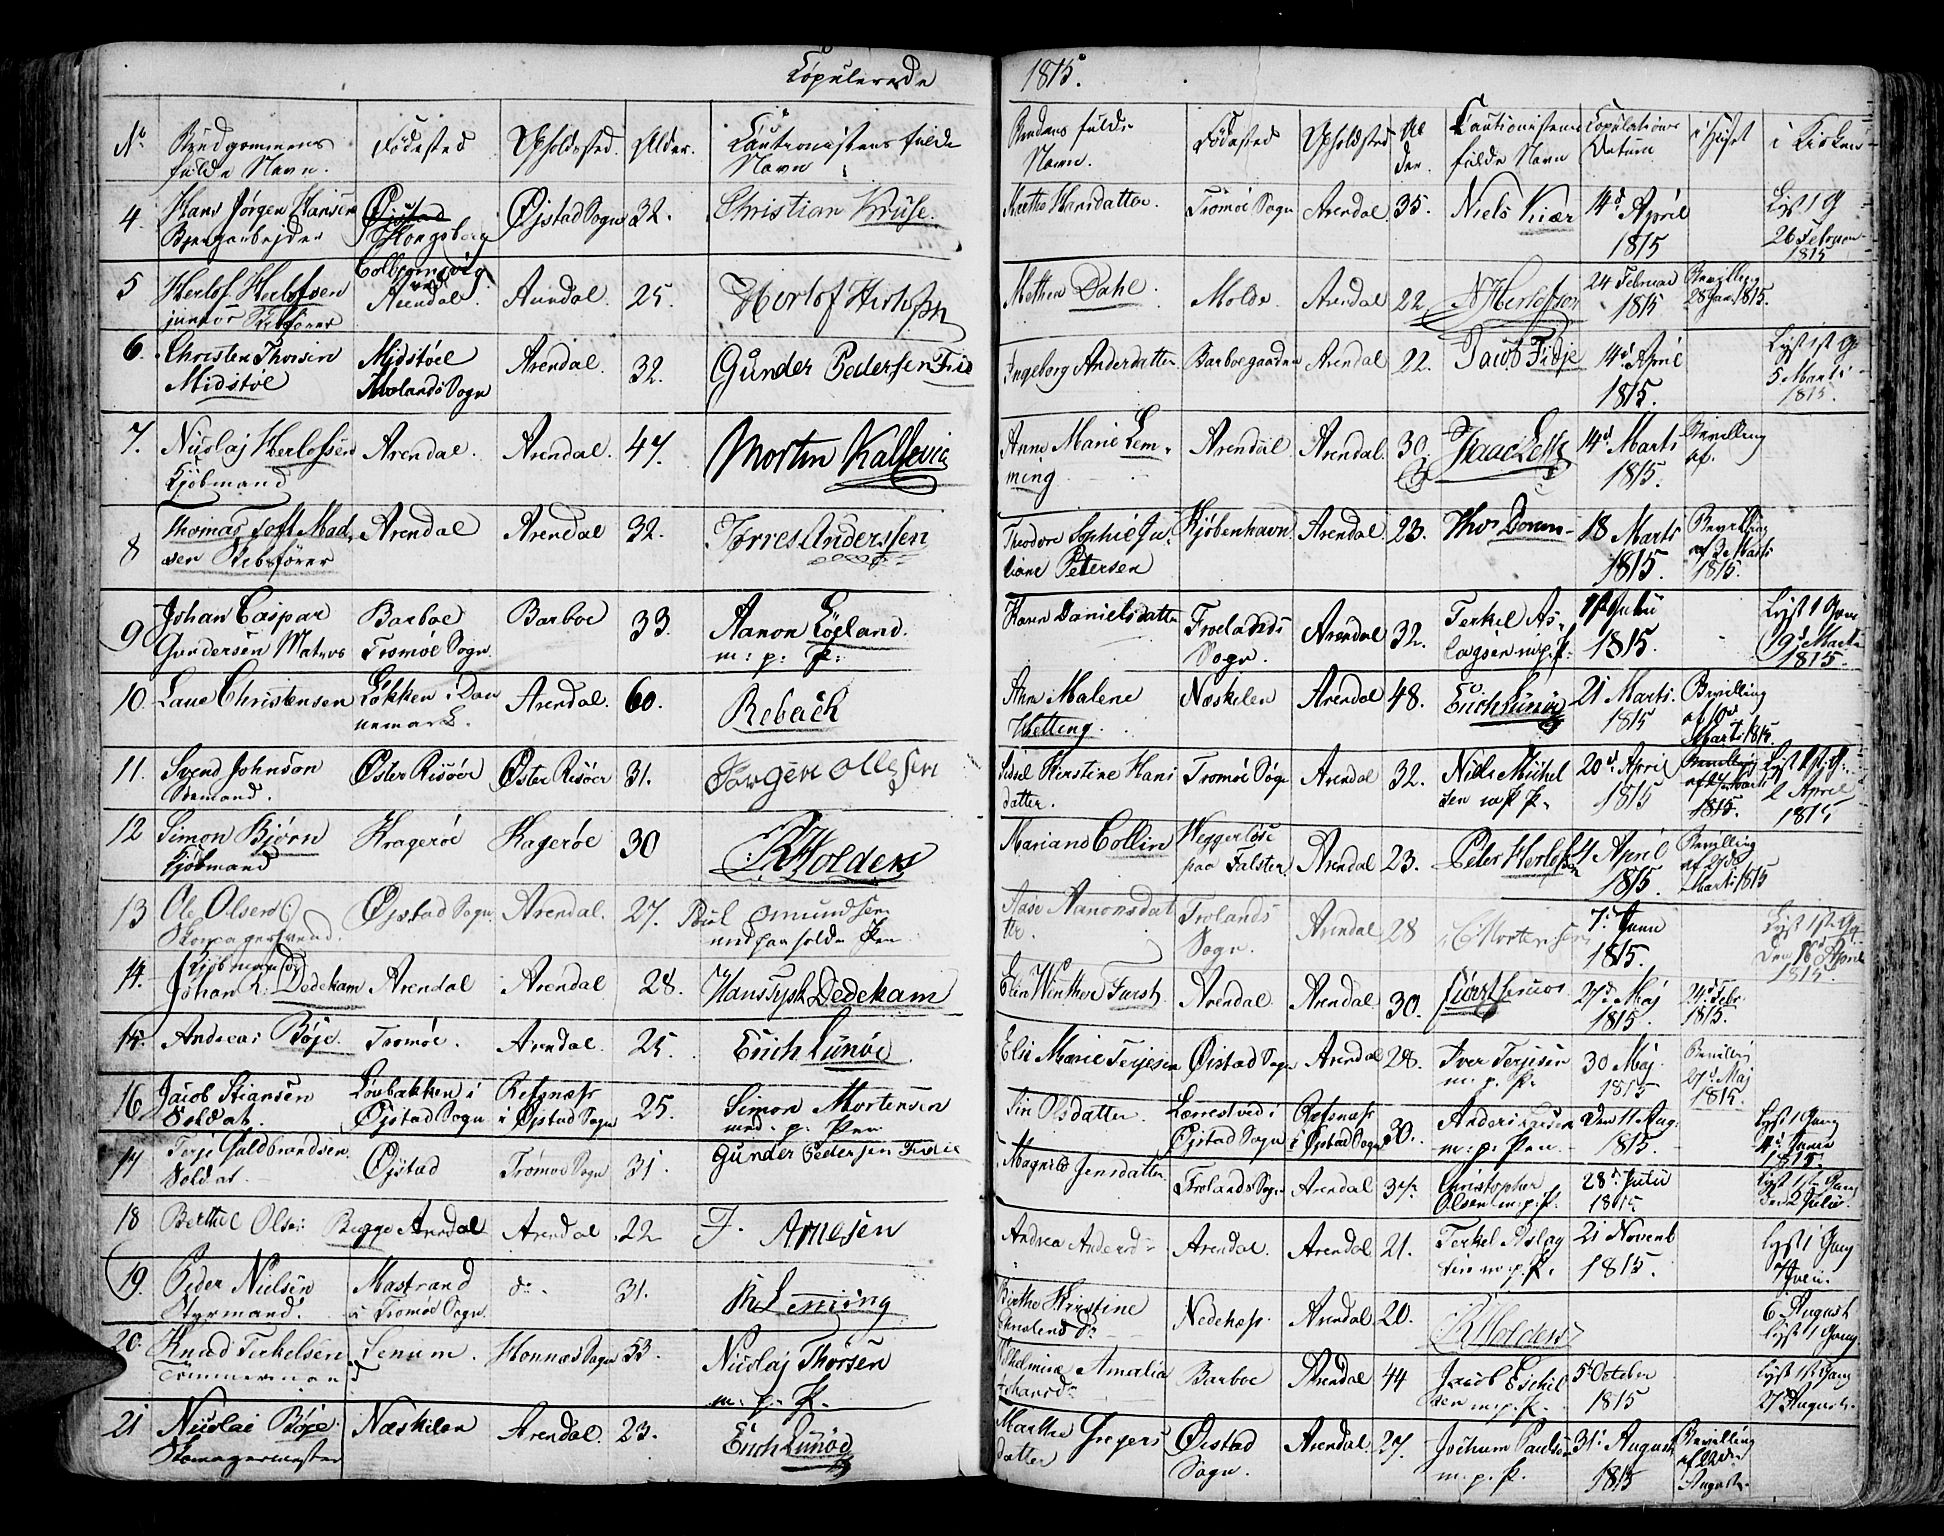 Copulerede
1815.
No
Brudgommens
fulde Navn.
Fødested
Opholdsted.
Alder.
Cautionistens fulde
Navn
Brudens fulde
Navn.
Fødested
Opholdsted
Al
der.
Cautionistens
fulde Navn
Copulations
Datum
i Huset
i Kirken
4.
Hans Jørgen Hansen
Øjstad
Kongsberg
Øjstad Sogn
32.
Christian Kruse.
Marthe Hansdatter.
Tromøe Sogn
Arendal
35.
Niels Kiær
14d April
1815
Lyst 1 G
26 Februar
1815
5
Herlof Herlofsen
junior Skibsfører
Colbiørnsvig
ved
Arendal.
Arendal.
25.
Herlof Herlofsen
Methea Dahl.
Molde.
Arendal
22
N Herlofsen
24 Februar
1815
Bevilling
28 Jan. 1815.
6.
Christen Thorsen
Midstøe
Midstøel
Molands Sogn
Arendal.
32.
Gunder Pedersen Fidie
Ingeborg Andersdatter
Barboegaarden
Arendal
22.
Jacob Fidje
14d April
1815.
Lyst 1st G
5 Marti
1815.
7.
Nicolaj Herlofsen
Kjøbmand
Arendal.
Arendal.
47.
Morten Kallevig
Anne Marie Lem-
ming
Arendal
Arendal.
30.
14d Marts
1815.
Bevilling
af.
8
Thomas Toft Mad-
sen Skibsfører
Arendal
Arendal
32.
Tørres Anderssen
Theodora Sophie Ju-
liane Petersen
Kjøbenhavn
Arendal.
23.
18 Marts
1815.
Bevilling
af 3 Marts
1815.
9
Johan Caspar
Gundersen Matros
Barboe
Tromøe Sogn
Barboe
33.
Aanon Løgland.
m: p: P:
Karen Danielsdatter
Froelands
Sogn.
Arendal
32.
Terkel As-
lagsen m.p.P.
Julii
1815.
Lyst 1 Gang
19d Marts
1815.
10.
Laue Christensen
Løkken i Dan
nemark.
Arendal.
60.
Rebach
Ann Malene
Wetting.
Næskilen
Arendal.
48.
Erich Lunøe
21 Marts
1815
Bevilling
af 10de
Marti 1815.
11.
Svend Johnson
Sømand.
Øster Risøer
Øster Risøer
31.
Jørgen Ollesen
Sidsel Kirstine Hans
datter.
Tromøe Sogn
Arendal
32.
Niels Mickel
sen m.p.P.
20d April
1815
Bevilling
1815.
Lyst 1st G:
2 April
1815
12
Simon Bjørn
Kjøbmand
Kragerøe
Kragerøe
30
R Holden
Mariane Collin
Weggerløse
paa Falster
Arendal
23.
Peter Herlofsen
4 April
1815.
Bevilling
af 27de
Marti 1815
13
Ole Olsen
Skomagersvend.
Øjstad Sogn.
Arendal.
27.
Poul Omundsen
med paaholden Pen
Aase Aanonsdat
ter.
Frolands
Sogn.
Arendal
28
C Mortensen
7. Juni
1815.
Lyst 1st G.
Den 16d April
1815.
14.
Kjøbmand
Johan L. Dedekam
Arendal
Arendal
28.
Hans Tysk Dedekam
Elen Winther Furst.
Arendal.
Arendal.
30.
27d Maj
1815.
24d Febr.
1815.
15.
Andreas Bøje.
Tromøe.
Arendal.
25.
Erich Lunøe.
Elie Marie Terjesen
Øistad Sogn
Arendal
28.
Iver Terjesen
m. p. P.
30 Maj.
1815
Bevilling
27d Maj
1815.
16
Jacob Stiansen
Soldat.
Løvbakken i
Øjstad Sogn
Refsnæss
i Øjstad Sogn
25.
Simon Mortensen
med. p. Pen
Siri Olsdatter.
Lærrestved i
Øjstad Sogn
Refsnæss
i Øjstad Sogn
30.
Anders Larsen
m. p. Pen.
Den 11 Aug.
1815.
Lyst 1 Gang
4d Junii
1815.
17
Terje Guldbrandsen.
Soldat.
Øjstad
Tromøe Sogn
31
Gunder Pedersen Fidie
Magnild Jensdatter
Frolands Sogn
Arendal
37.
Christopher
Olsen m.p.P.
28d Julii
1815
Lyst 1st Gang
den 2 Julii.
18
Berthel Olsen
Bygge Arendal
Arendal
22
F. Arnesen
Andrea Andersd
Arendal.
Arendal
21.
Terkel Aslag
sen m.p.P.
21 Novemb
1815.
Lyst 1 Gang
19.
Peder Nielsen
Styrmand.
Mastrand
i Tromøe Sogn.
do
31.
R Leming
Birthe Kirstine
Nedenæss.
Arendal
20.
R Holden
6 August
Lyst 1 Gang
20.
Knud Terkelsen
Tømmermand
Senum.
Honnæs Sogn
53.
Nicolaj Thorsen
m. p. P.
Wilhelmine Amalia
Johansd.
Barboe
Arendal
44
Jacob Eskil
sen m.p.P.
5 October
1815
Lyst 1st Gang
27d August.
21
Nicolai Bøje.
Skomagermester
Næskilen
Arendal.
23.
Erich Lunøe
Marthe Gregers
datter
Øistad
Sogn.
Arendal
27.
Jochum Paulsen
m. p. P.
31d August
1815
Bevilling
af 22den
August.